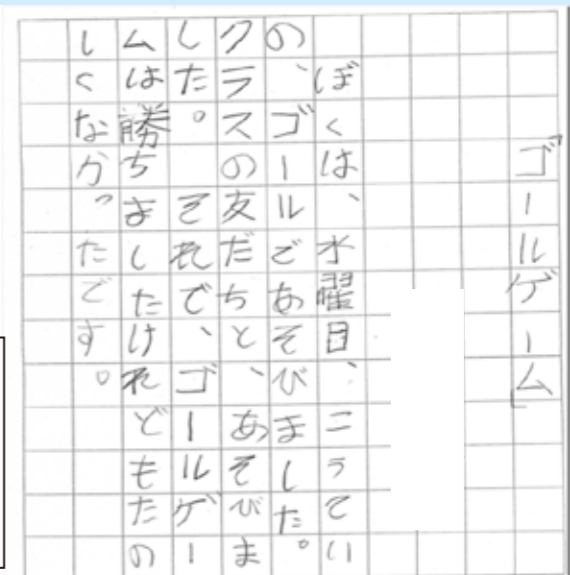 「ゴールゲーム」
ぼくは、水曜日、こうてい
の、ゴールであそびました。
クラスの友だちと、あそびま
した。 それで、ゴールゲー
ムは勝ちましたけれどもたの
しくなかったです。